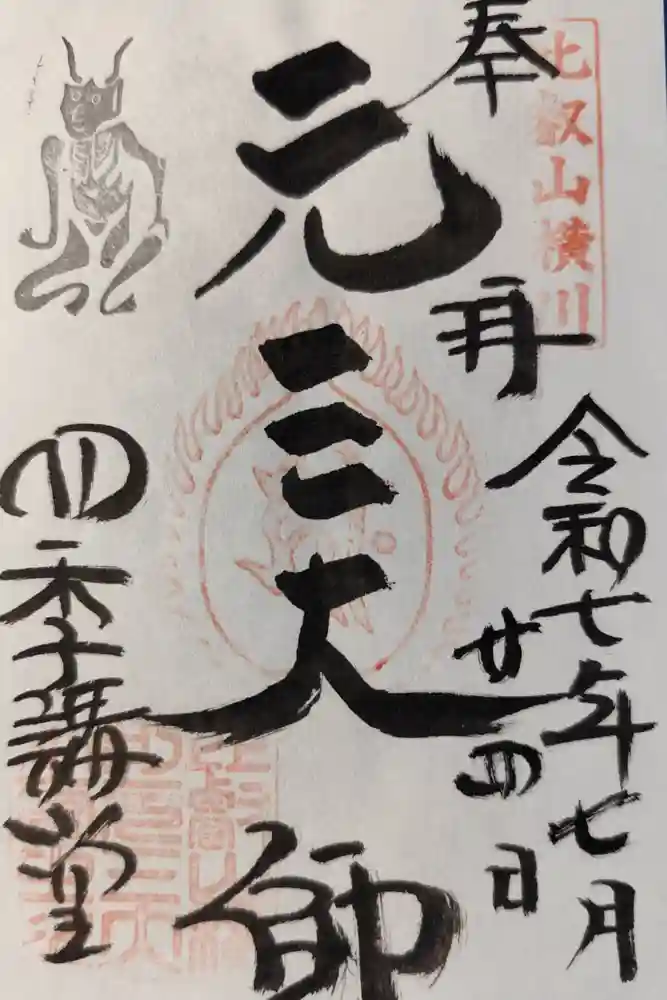 比叡山横川
奉拝
令和七年七月
廿四日
元三大師
四季講堂